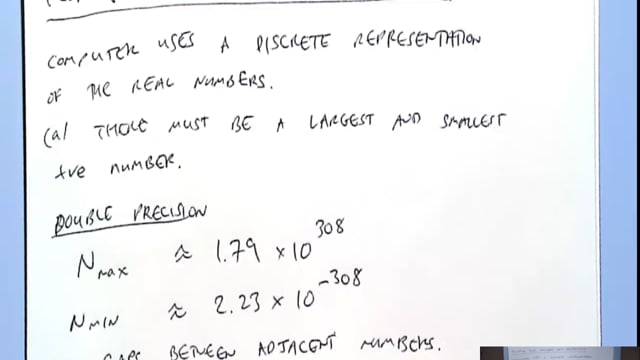 COMPUTER USES A DISCRETE REPRESENTATION
OF THE REAL NUMBERS.
(a) THERE MUST BE A LARGEST AND SMALLEST
+ve NUMBER.
DOUBLE PRECISION
N_MAX ≈ 1.79 × 10^308
N_MIN ≈ 2.23 × 10^-308
GAPS BETWEEN ADJACENT NUMBERS.